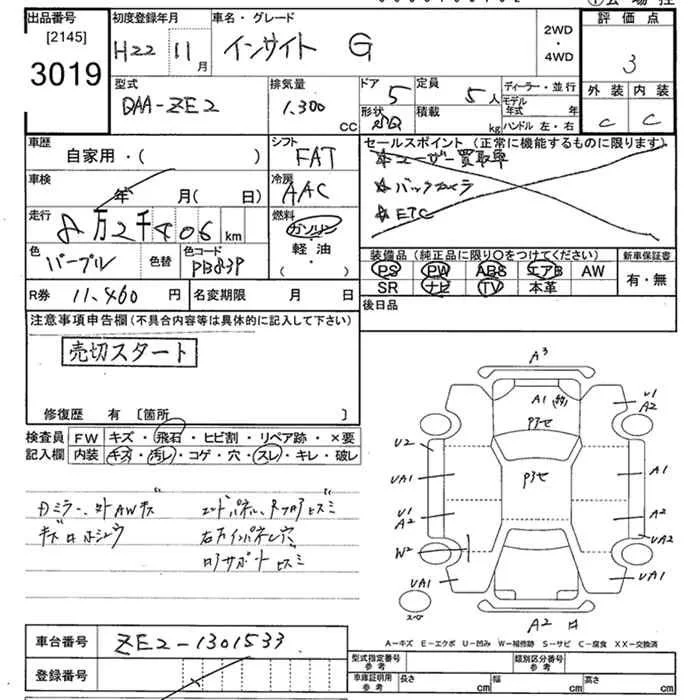 出品番号
[2145]
3019
初度登録年月
H22 11月
車名・グレード
インサイト G
2WD
・
4WD
評価点
3
外装 内装
C C
型式
DAA-ZE2
排気量
1,300 CC
ドア 5
形状 5D
定員 5人
積載 kg
ディーラー・並行
モデル年式 年
ハンドル 左・右
車歴
自家用・( )
シフト
FAT
セールスポイント (正常に機能するものに限ります)
☆ユーザー買取車
☆バックカメラ
☆ETC
車検
年 月( 日)
冷房
AAC
走行
8万2千406 km
燃料
ガソリン
軽油
・( )
色
パープル
色替
色コード
PB83P
装備品 (純正品に限り○をつけてください)
PS PW ABS エアB AW
SR ナビ TV 本革
新車保証書
有・無
R券 11,460 円
名変期限 月 日
後日品
注意事項申告欄 (不具合内容等は具体的に記入して下さい)
売切スタート
修復歴 有 [箇所 ]
検査員 FW キズ・飛石・ヒビ割・リペア跡・×要
記入欄 内装 キズ・汚レ・コゲ・穴・スレ・キレ・破レ
外AWキズ
エンドパネル
ロアサポートヒズミ
A3
A1
U1
A2
U2
UA1
A1
U1
A2
A2
W2
UA2
UA1
UA1
A2
スペア
A-キズ E-エクボ U-凹み W-補修跡 S-サビ C-腐食 XX-交換済
車台番号 ZE2-1301533
登録番号
型式指定番号 参考
類別区分番号 参考
車庫証明用 参考
長さ cm 幅 cm 高さ cm